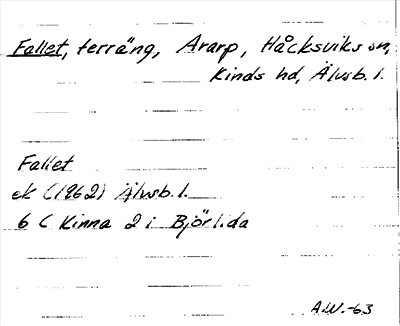 Fallet, terräng, Ararp, Håcksviks sn,
Kinds hd, Älvsb. l.
Fallet
ek (1962) Älvsb. l.
6 C Kinna 2 i Björlida
A.W.-63